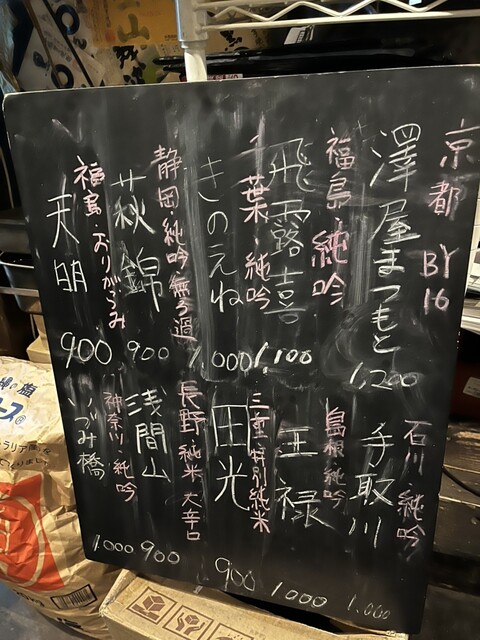 京都 BY16
澤屋まつもと
1,200
福島・純吟
飛露喜
1,100
千葉・純吟
きのえね
1,000
静岡・純吟無ろ過
萩錦
900
福島・おりがらみ
天明
900
石川・純吟
手取川
1,000
島根・純吟
王禄
1,000
三重・特別純米
田光
900
長野 純米大辛口
浅間山
900
神奈川・純吟
いづみ橋
1,000
の塩
ース®